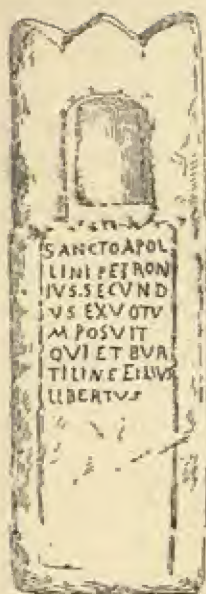 SANCTOAPOL
LINI PETRON
IVS.SECVND
VS EXVOTV
M POSVIT
QVI ET BVR
TILINE EILIVS
LIBERTVS